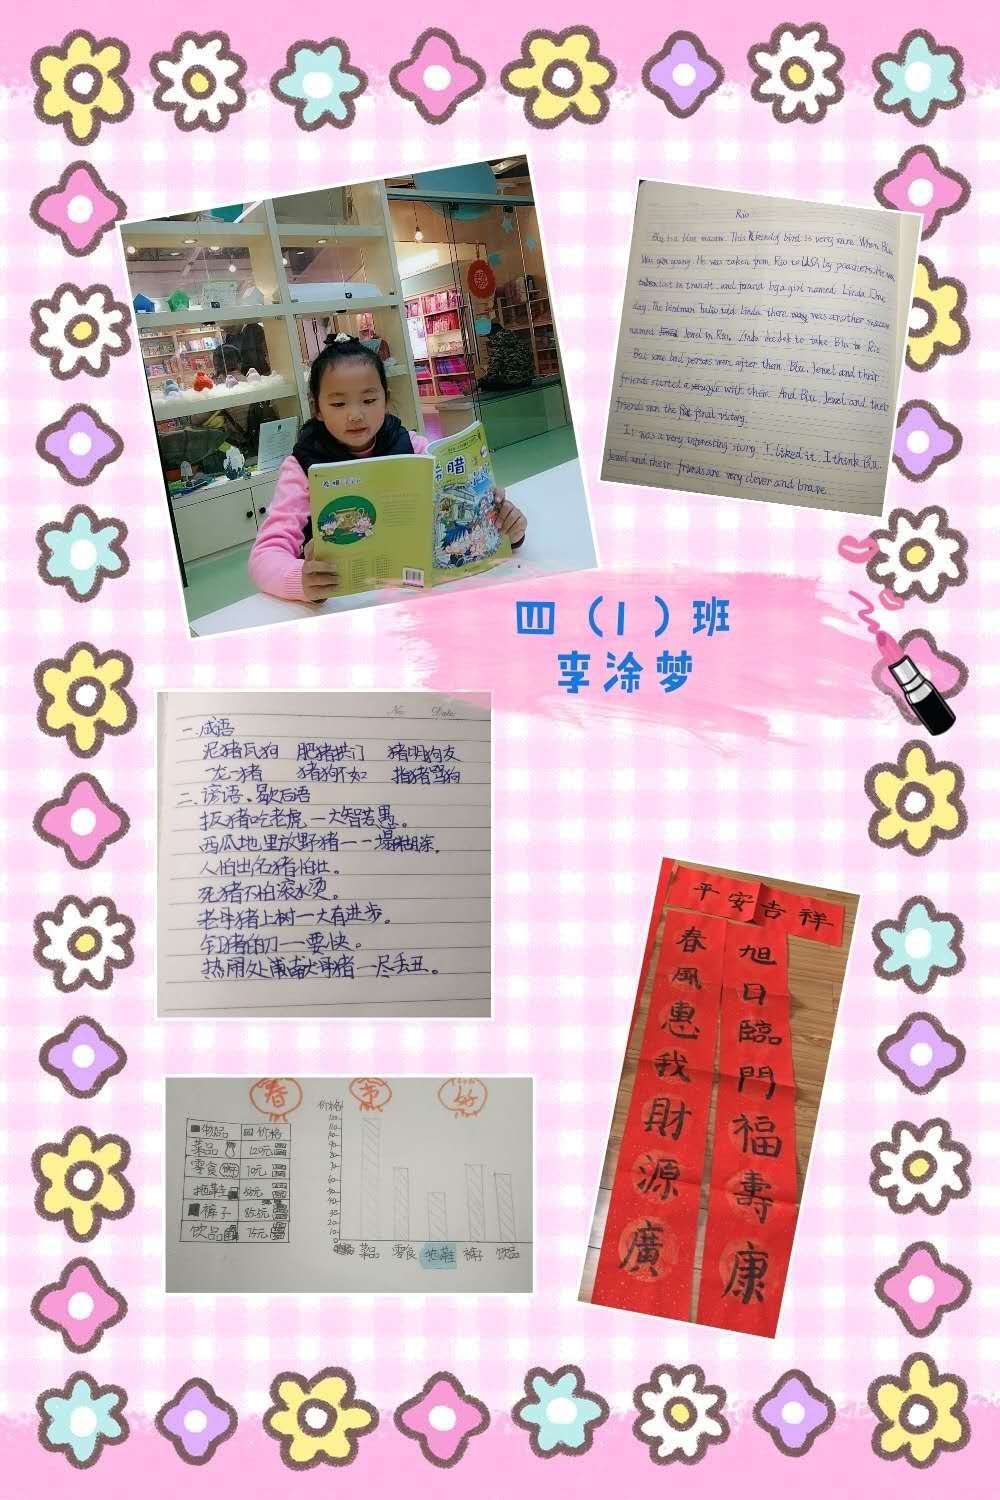 希腊
Rio
Blu is a blue macaw. This kind of bird is very rare. When Blu
was young. He was taken from Rio to USA by poachers. He was
lost in transit. and found by a girl named Linda. One
day. The birdman Tulio told Linda there was another macaw
named Jewel in Rio. Linda decided to take Blu to Rio
But some bad persons were after them. Blu, Jewel and their
friends started a struggle with them. And Blu, Jewel and their
friends won the final victory.
It was a very interesting story. I liked it. I think Blu.
Jewel and their friends are very clever and brave.
四（1）班
李涂梦
No. Date
一.成语
泥猪瓦狗 肥猪拱门 猪朋狗友
一龙一猪 猪狗不如 指猪骂狗
二.谚语、歇后语
扮猪吃老虎—大智若愚。
西瓜地里放野猪——塌糊涂。
人怕出名猪怕壮。
死猪不怕滚水烫。
老母猪上树—大有进步。
钊猪的刀—要快。
热闹处卖母猪—尽丢丑。
平安吉祥
旭日臨門福壽康
春風惠我財源廣
春
物品 价格
菜品 120元
零食 70元
拖鞋
裤子 85.5元
饮品 75元
价格
菜品 零食 拖鞋 裤子 饮品